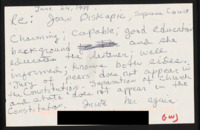 June 24, 1999
Re: Joan Biskupic, Supreme Court
Charming; capable; good education
background and she
educates the listener; well
informed; knows both sides.
"Jury of peers" does not appear in
Constitution - separation of Church
and state does not appear in the
Constitution. Invite her again
GWJ